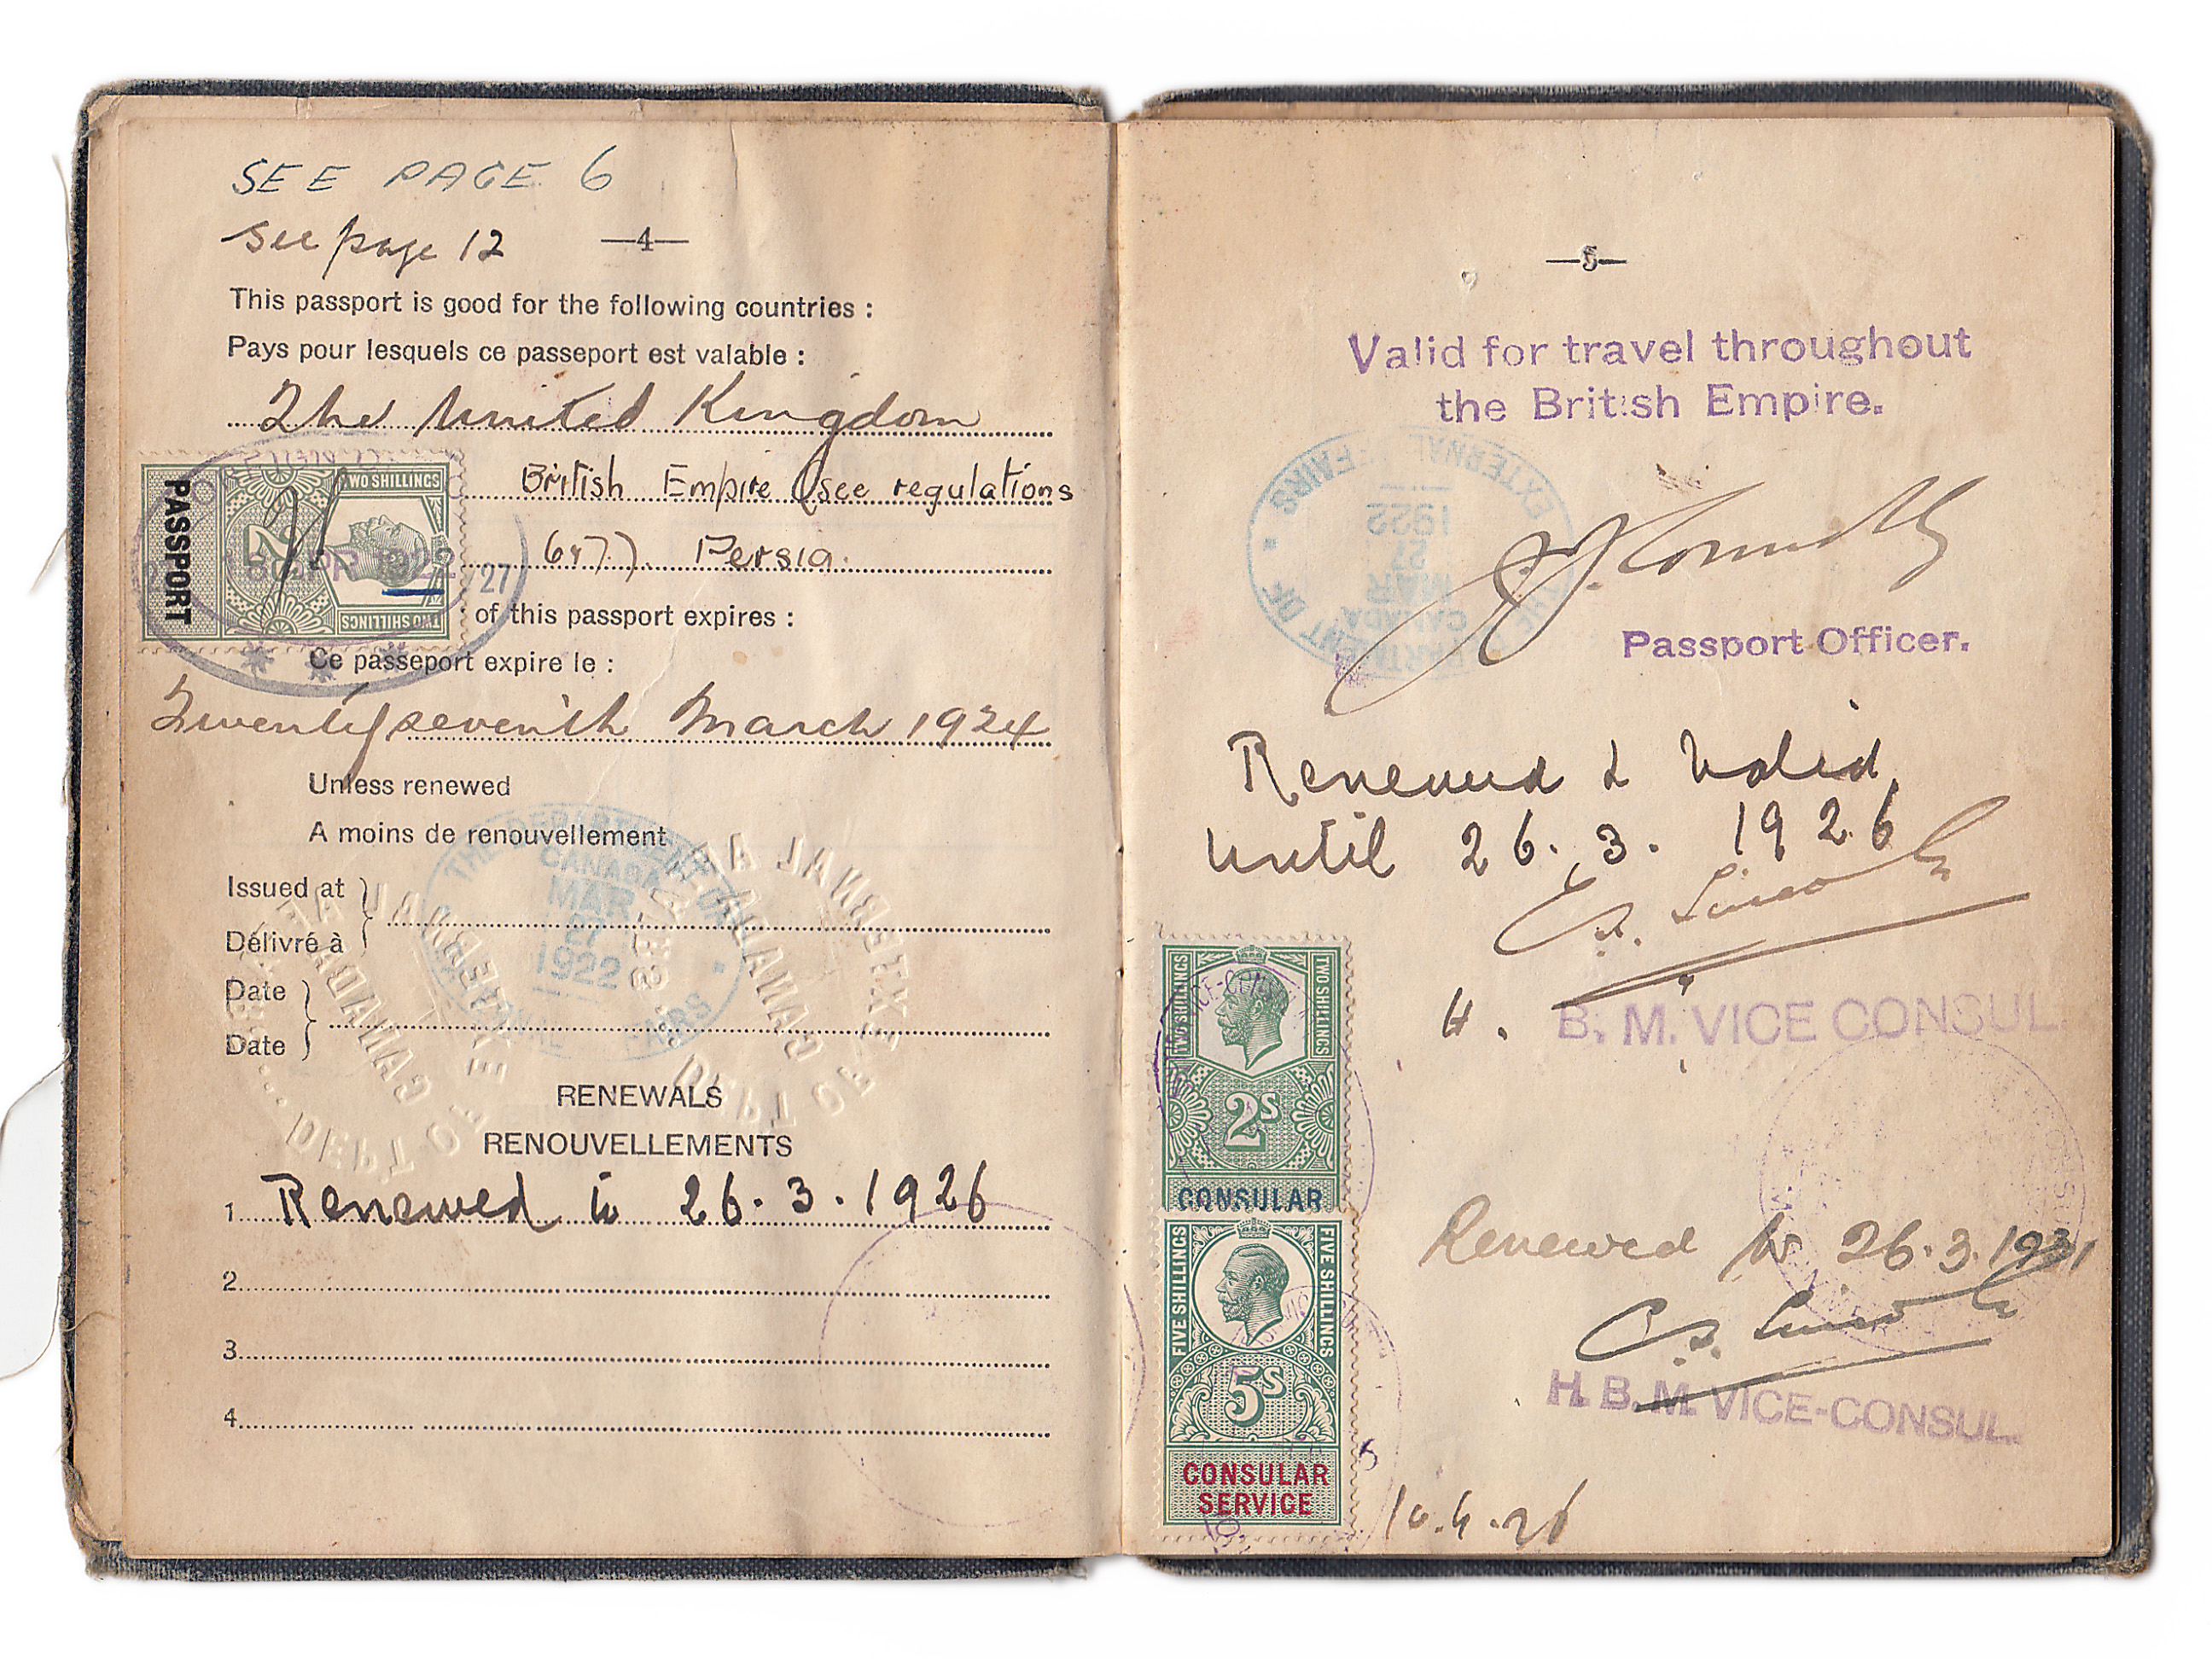 SEE PAGE 6
see page 12
—4—
This passport is good for the following countries :
Pays pour lesquels ce passeport est valable :
The United Kingdom
British Empire (see regulations
6&7). Persia.
TWO SHILLINGS
2
PASSPORT
TWO SHILLINGS
APR 1922
27
of this passport expires :
Ce passeport expire le :
Twenty seventh March 1924
Unless renewed
A moins de renouvellement
THE DEPARTMENT OF EXTERNAL AFFAIRS
CANADA
MAR
27
1922
Issued at
Délivré à
Date
Date
RENEWALS
RENOUVELLEMENTS
1 Renewed to 26.3.1926
2
3
4
—5—
Valid for travel throughout
the British Empire.
THE DEPARTMENT OF EXTERNAL AFFAIRS
CANADA
MAR
27
1922
Passport Officer.
Renewed & Valid
until 26.3.1926
H. B. M. VICE CONSUL
TWO SHILLINGS
TWO SHILLINGS
2S
CONSULAR
FIVE SHILLINGS
FIVE SHILLINGS
5S
CONSULAR
SERVICE
Renewed to 26.3.1931
H. B. M. VICE-CONSUL.